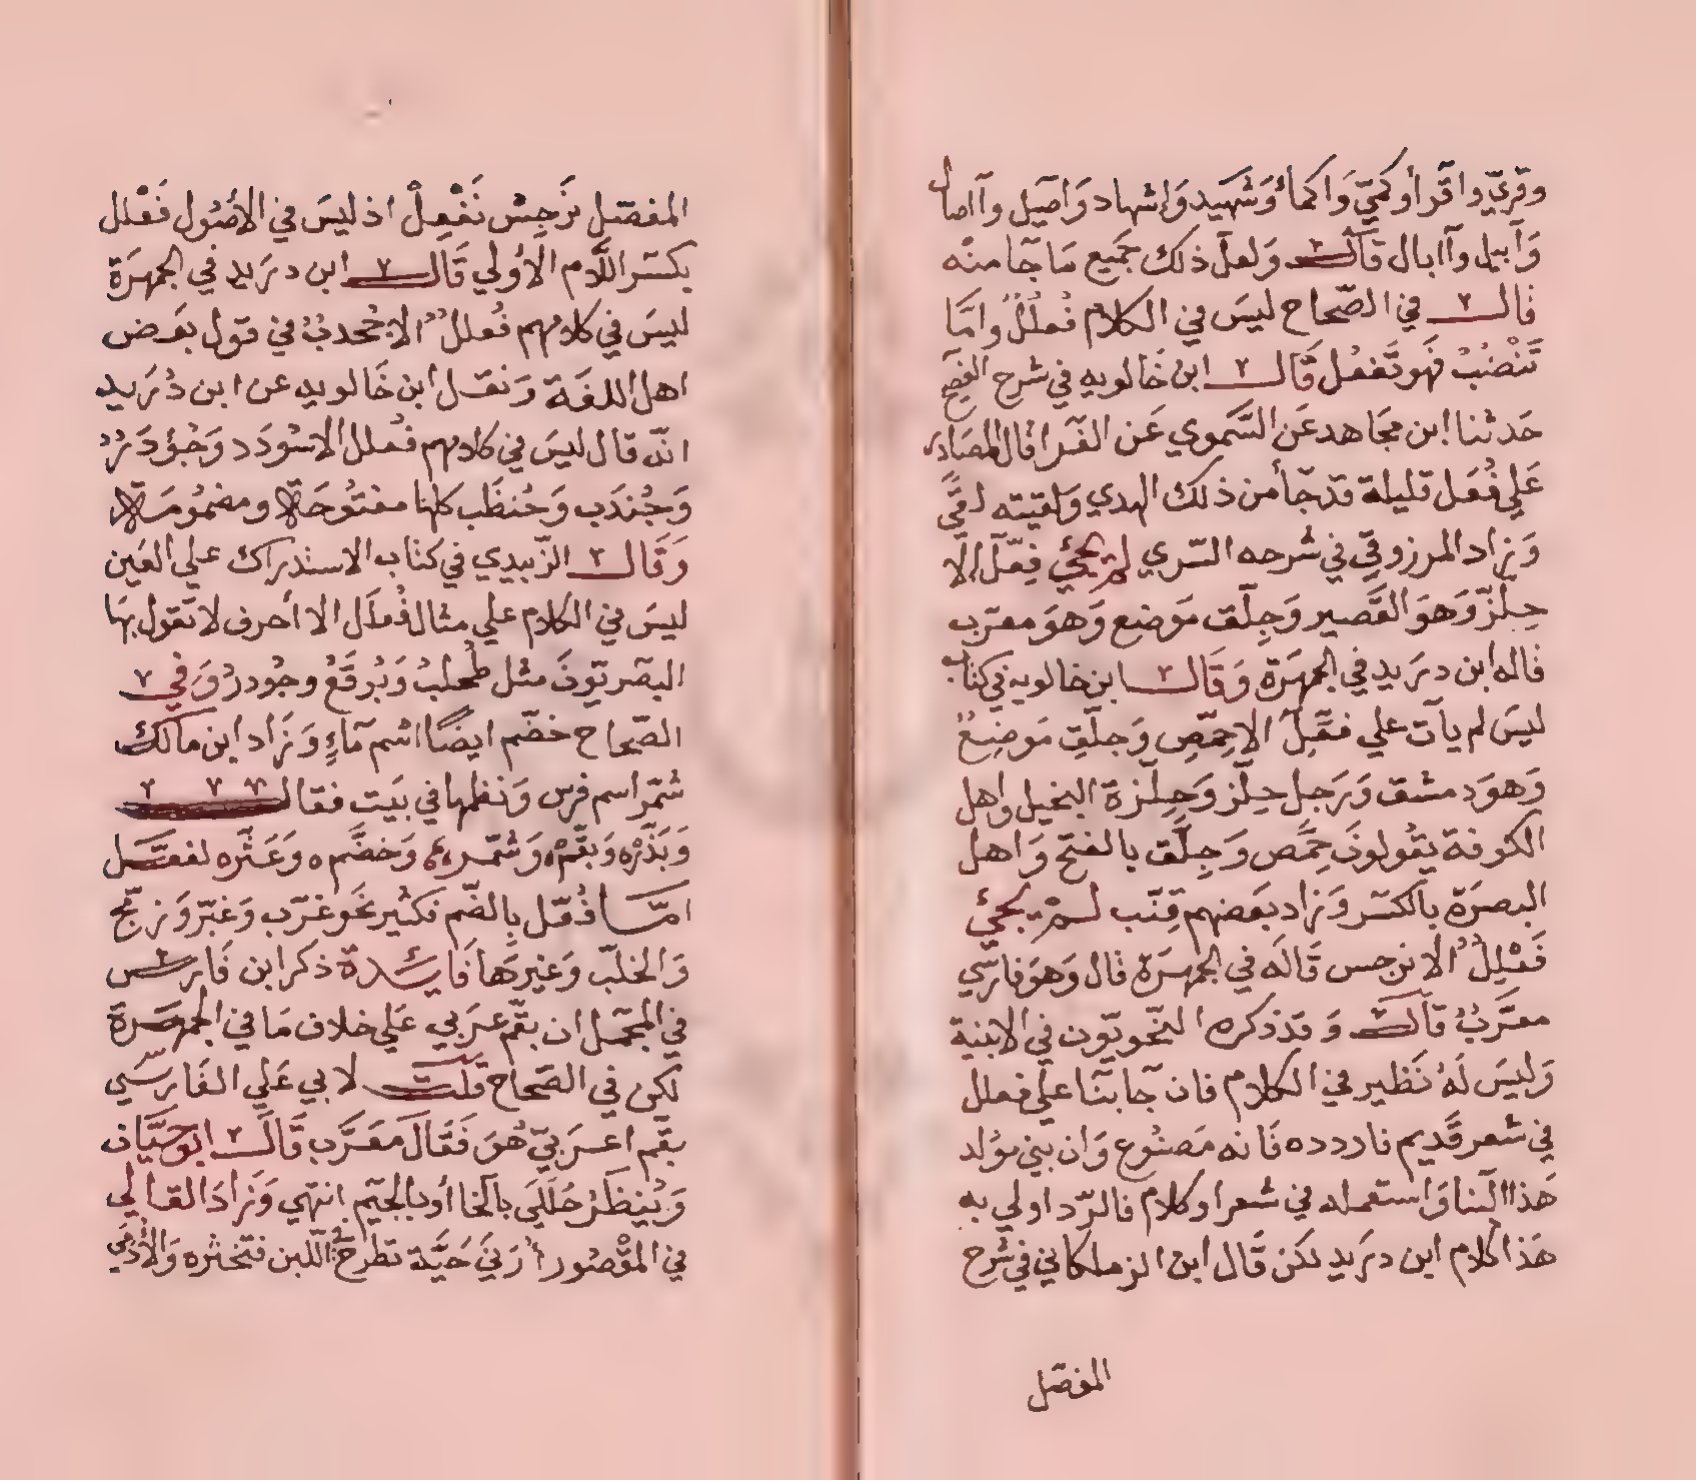 وقريّ واقرأ وكميّ وَاكماءُ وَشَهيد وَاشهاد وَاصَيل وآاصال
وَأبيل وآابال قالَ وَلعلّ ذلك جَميع مَا جَآ منْه
قال في الصّحاح ليسَ في الكلام فُعلُلُ وامّا
تَنْضُبُ فهو تَفعُل قَال ابن خَالويه في شرح الفصيح
حَدثنا ابن مجَاهد عَن السَّموي عَن الفَرا قال المصَادر
عَلي فُعَل قليلة قد جَآ من ذلك الهدي وَلقيته لقيً
وَزاد المرزوقي في شرحه السّري لم يجئ فِعّل الا
حِلّز وَهوَ القَصير وَجِلّق مَوضع وَهوَ معرّب
قاله ابن دريد في الجمهَرَة وَقَال ابن خالويه في كتاب
ليسَ لم يأت علي فِعّل الاحِمّصِ وَجلّق مَوضِعُ
وَهوَ دمشق وَرَجل حِلّز وَحِلّزة البخيل واهل
الكوفة يقُولونَ حِمَّص وَجِلَّق بالفتح وَاهل
البصرَة بالكسَر وَزاد بعَضهم قِنّب لم يجئ
فَعْلِلُ الا نرجس قَالَه في الجمهَرَة قال وَهوَ فارسّي
معَرَّبُ قالَ وَقد ذكره النّحويّون في الابنية
وَليسَ لَهُ نَظير في الكلام فان جَآ بنَآ علي فعلل
في شعر قَديم فاردده فَانه مَصنُوع وَان بني مولد
هَذا البنا وَاستعمله في شعر او كلام فالرّد اولي به
هَذا كلام ابن دريد لكن قَال ابن الزملكاني في شَرح
المفصّل
المفصّل نَرجِسْ نَفْعِلْ اذ ليسَ في الاصُول فَعْلل
بكسَر اللّام الاوُلي قَال ابن دريد في الجمهَرَة
ليسَ في كلامهم فُعلل الا جُحدبُ في قول بعَض
اهل اللغَة وَنقل ابن خَالويه عن ابن دُرَيد
انّه قال ليسَ في كلامهم فُعلل الا سُودَد وَجُؤدَرُ
وَجُندَب وَحُنظَب كلها مفتوُحَة ومضمُومَة
وَقَال الزّبيدي في كتاب الاستدراك علي العَين
ليسَ في الكلام علي مثال فُعلَل الا أحرف لا تَقول بهَا
البصَريّونَ مثل طُحلبُ وَبُرقَعُ وجُودرُ وَفي
الصّحاح خضّم ايضًا اسْم مَآءٍ وَزَاد ابن مَالك
شَمّر اسم فرس وَنظمها في بيَت فقال
وَبَذَّرْه وَبقَّمْ وَشَمّر وَخضَّم ه وَعَثَّره لفعّل
امّا فُعّل بالضّم فكثير نَحو غرّب وَغبّر وَزمّج
وَالخلّب وَغيرهَا فَائدة ذكر ابن فَارس
في المجمَل ان بقّم عرَبي عَلي خلاف مَا في الجمهَرَة
لكن في الصّحَاح قلت لابي عَلي الفَارسّي
بقّم اعرَبيّ هُوَ فَقَالَ معَرَّب قَالَ ابو حَيَّان
وَيُنظَر حَلّلَي بالخا او بالجَيم انتهي وَزادَ القالي
في المقْصُور أرَنَي حَبَّة تطرح في اللّبن فتخثره وَالأدَمي